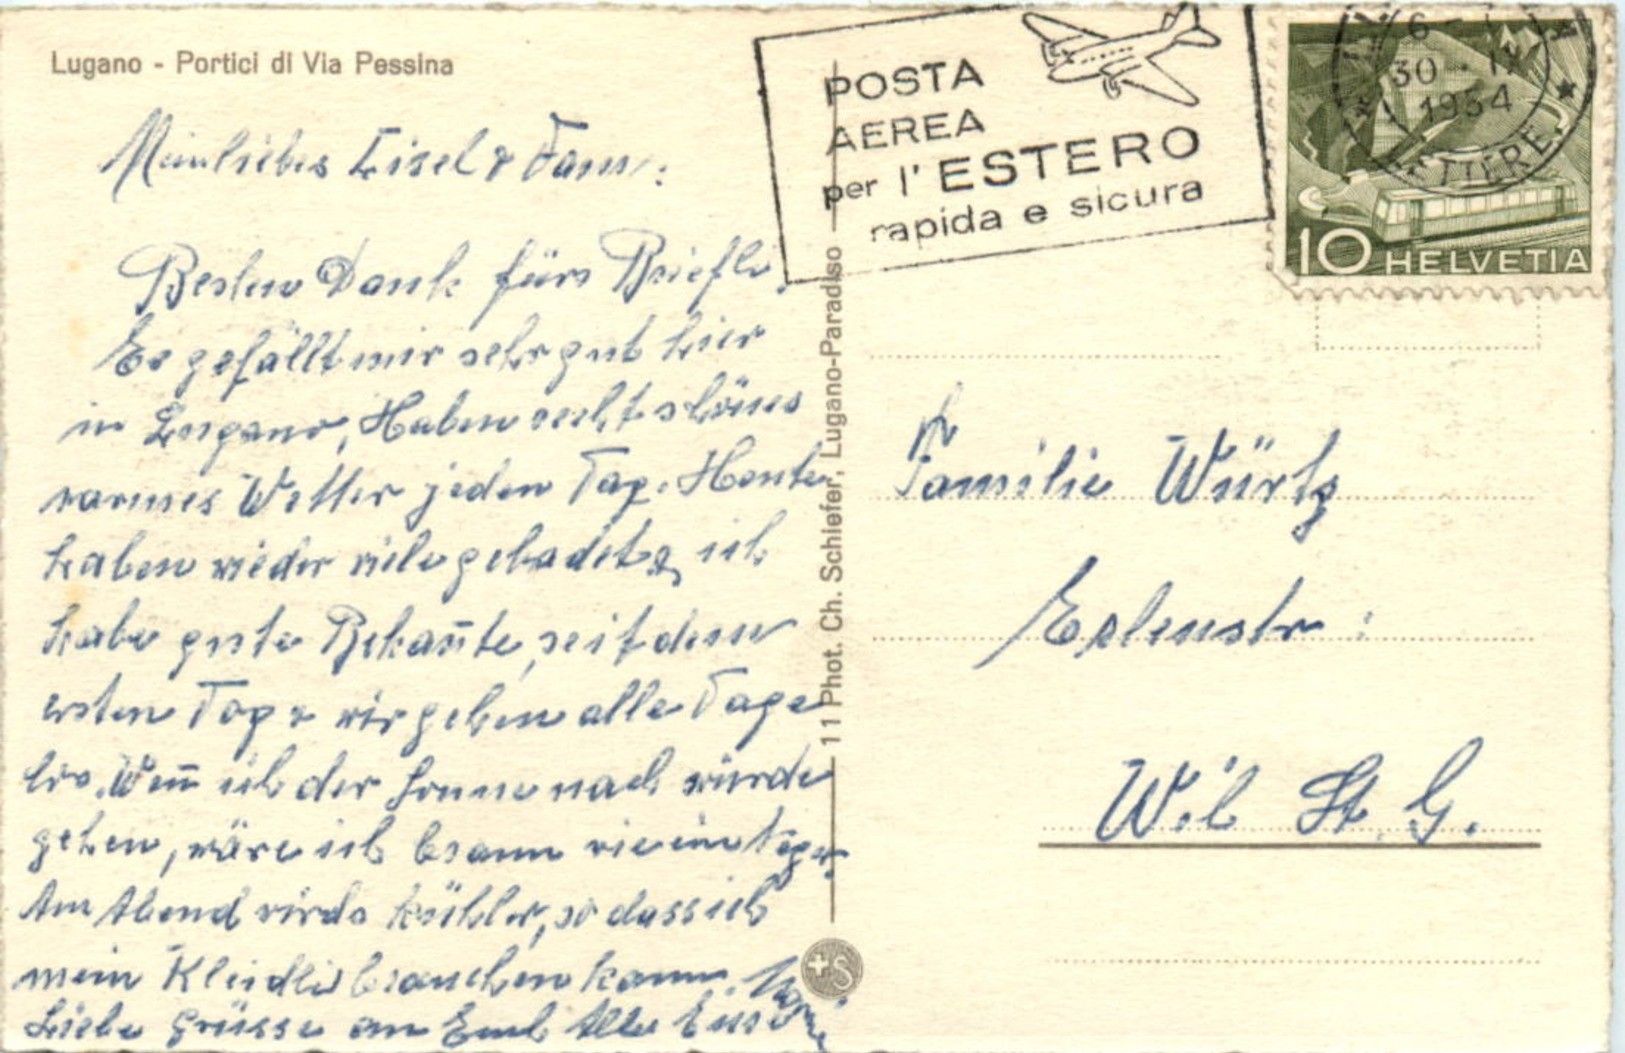 Lugano - Portici di Via Pessina
Mein liebes Lisel & Fam:
Besten Dank fürs Briefli.
Es gefällt mir sehr gut hier
in Lugano, Haben recht schönes
warmes Wetter jeden Tag. Heute
haben wieder viele gebadet & ich
habe gute Bekañte, seit dem
ersten Tag & wir gehen alle Tage
. Weñ ich der Sonne nach würde
gehen, wäre ich braun wie ein
Am Abend wirds kühler, so dass ich
mein Kleidli brauchen kann.
Liebe Grüsse an Euch Alle Eure
POSTA
AEREA
per l'ESTERO
rapida e sicura
6 -
30 - IX
1954
LETTERE
10 HELVETIA
11 Phot. Ch. Schiefer, Lugano-Paradiso
+S
Familie Würtz
Erlenstr:
Wil St. G.